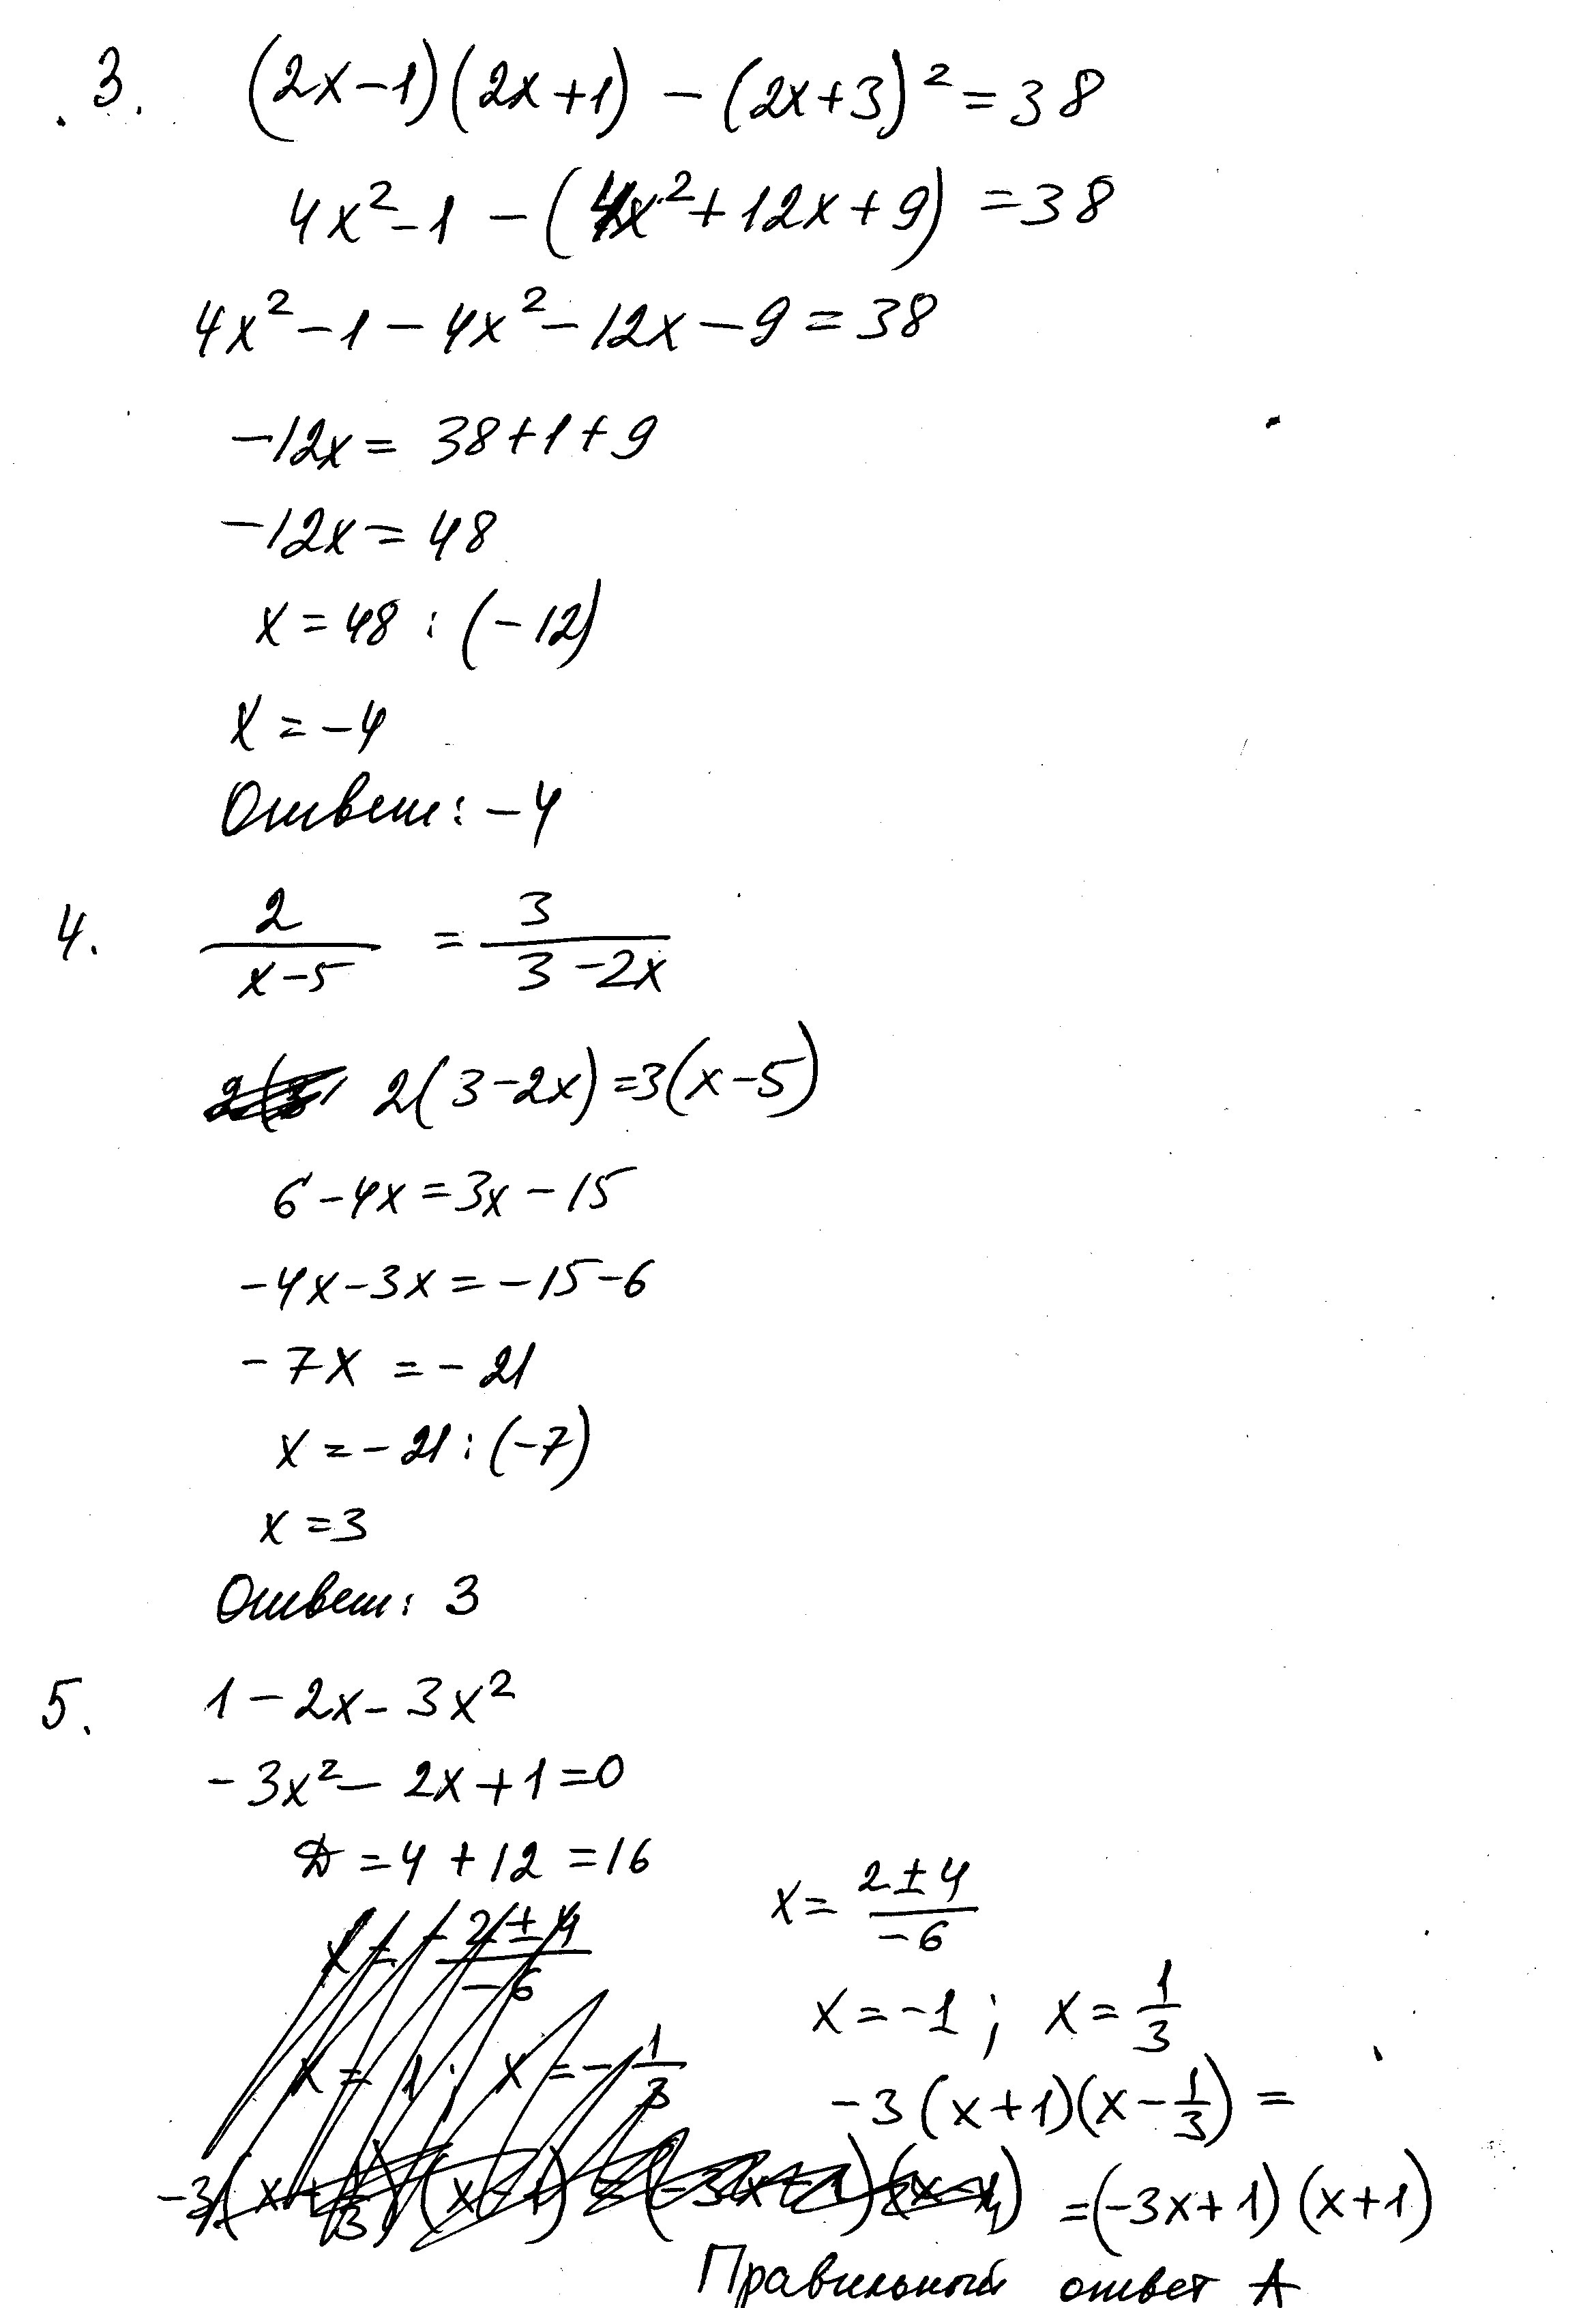 3. (2x-1)(2x+1) - (2x+3)² = 38
4x² - 1 - (4x² + 12x + 9) = 38
4x² - 1 - 4x² - 12x - 9 = 38
-12x = 38 + 1 + 9
-12x = 48
x = 48 : (-12)
x = -4
Ответ: -4
4. 2/(x-5) = 3/(3-2x)
2(3-2x) = 3(x-5)
6 - 4x = 3x - 15
-4x - 3x = -15 - 6
-7x = -21
x = -21 : (-7)
x = 3
Ответ: 3
5. 1 - 2x - 3x²
-3x² - 2x + 1 = 0
D = 4 + 12 = 16
x = (2±4)/-6
x = -1; x = 1/3
-3(x+1)(x-1/3) =
= (-3x+1)(x+1)
Правильный ответ А